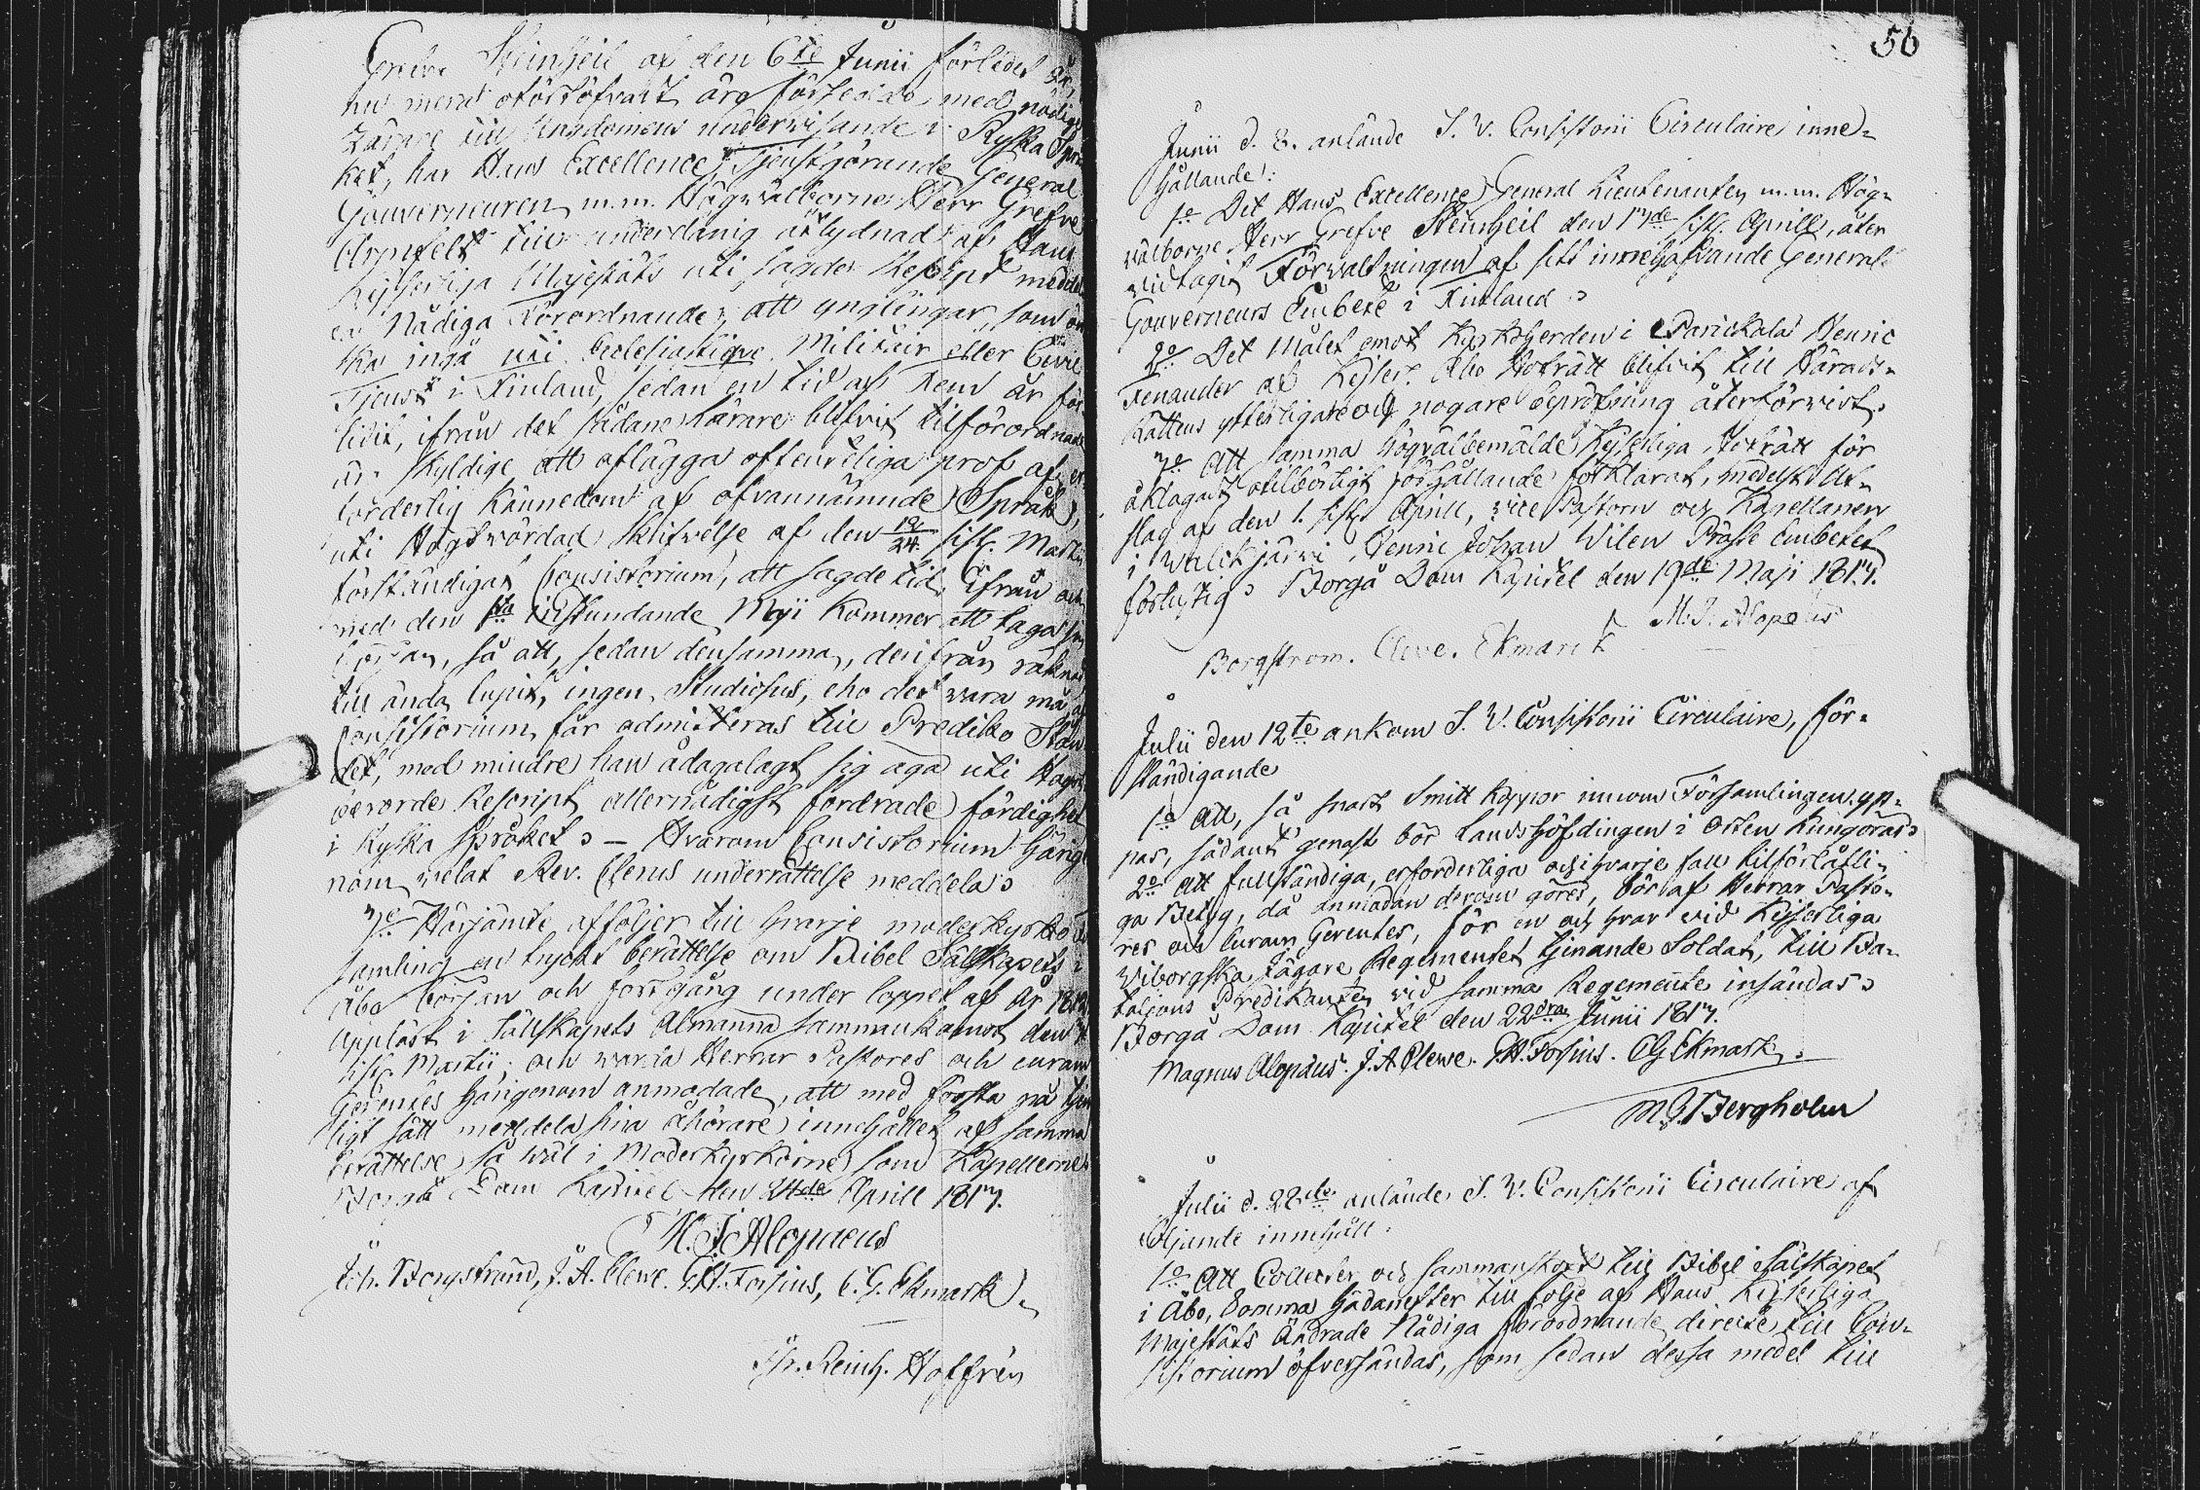 Grefve Steinheil af den 6te Junii förledet år,
nu mera oförtöfvadt äro försedde med nödige
Lärare till Ungdomens undervisande i Ryska Språ
ket, har Hans Excellence, Tjenstgörande General
Gouverneuren m.m. Högvälborne Herr Grefve
Armfelt till underdånig åtlydnad af Hans
Kejserliga Majestäts uti sagde Rescript meddel
te Nådiga Förordnande, att ynglingar, som ön
ska ingå uti Ecclesiastique Militair eller Civil
Tjenst i Finland, sedan en tid af fem år för
lidit, ifrån det sådane Lärare blifvit tilförordnade
äro skyldige att aflägga offenteliga prof af er
forderlig kännedom af ofvannämnde Språk,
uti Högtvördad skrifvelse af den 12/24 sistl. Martii
förständigat Consistorium, att sagde tid, ifrån och
med den 1sta tilstundande Maji kommer att taga sin
början, så att, sedan densamma, derifrån räknad
till ända lupit, ingen Studiosus, eho det vara må, af
Consistorium får admitteras till Prediko Stån
det, med mindre han ådagalagt sig äga uti Högst
berörde Rescript allernådigst fordrade färdighet
i Ryska Språket. – Hvarom Consistorium härige
nom velat Rev. Clerus underrättelse meddela.
7o Härjämte afföljer till hvarje moderkyrkoför
samling en tryckt berättelse om Bibel Sälskapets i
Åbo början och fortgång under loppet af år 1816
uppläst i Sällskapets Almänna sammankomst den
sistl. Martii; och varda Herrar Pastores och curam
Gerentes härigenom anmodade, att med första på tjen
ligt sätt meddela sina åhörare innehållet af samma
berättelse, så väl i Moderkyrkorne som Kapellerne.
Borgå Dom Kapitel den 24de Aprill 1817.
M. J. Alopaeus
Joh. Borgström, J. A. Cleve. G.H. Forsius, C. G. Ekmark.
Fr. Reinh. Hoffrén
56
Junii d. 8. anlände S. V. Consistorii Circulaire inne-
hållande:
1o Det Hans Excellence General Lieutenanten m.m. Hög-
välborne Herr Grefve Steinheil den 17de sistl. Aprill, åter
vidtagit Förvaltningen af sitt innehafvande General
Gouverneurs Embete i Finland.
2o Det Målet emot Kyrkoherden i Parickala Henric
Fenander af Kejserl. Åbo Hofrätt blifvit till Härads-
Rättens ytterligare och nogare bepröfning återförvist.
3o Att samma högvälbemälde Kejserliga Hofrätt för
åklagadt otilbörligt förhållande förklarat, medelst Ut-
slag af den 1. sistl. Aprill, vice Pastorn och Kapellanen
i Walckjärvi Henric Johan Wilen Präste Embetet
förlustig. Borgå Dom Kapitel den 19de Maji 1817.
M. J. Alopæus
Borgström. Cleve. Ekmark
Julii den 12te ankom S. V. Consistorii Circulaire, för-
ständigande
1o Att, så snart Smitt koppor innom Församlingen yp-
pas, sådant genast bör Landshöfdingen i Orten kungöras.
2o Att fullständiga, erforderliga och i hvarje fall tilförlåtli-
ga Betyg, då anmodan derom göres, bör af Herrar Pasto-
res och Curam Gerentes, för en och hvar vid Kejserliga
Wiborgska Jägare Regementet tjenande Soldat, till Ba-
taljons Predikanten vid samma Regemente insändas.
Borgå Dom Kapitel den 22dra Junii 1817.
Magnus Alopæus. J. A. Cleve. G.H. Forsius. CG Ekmark.
M. J. Bergholm
Julii d. 22de anlände S. V. Consistorii Circulaire af
följande innehåll:
1o Att Collecter och sammanskott till Bibel Sälskapet
i Åbo, komma hädanefter till följe af Hans Kejserliga
Majestäts Ändrade Nådiga förordnande, directe till Con-
sistorium öfversändas, som sedan dessa medel till